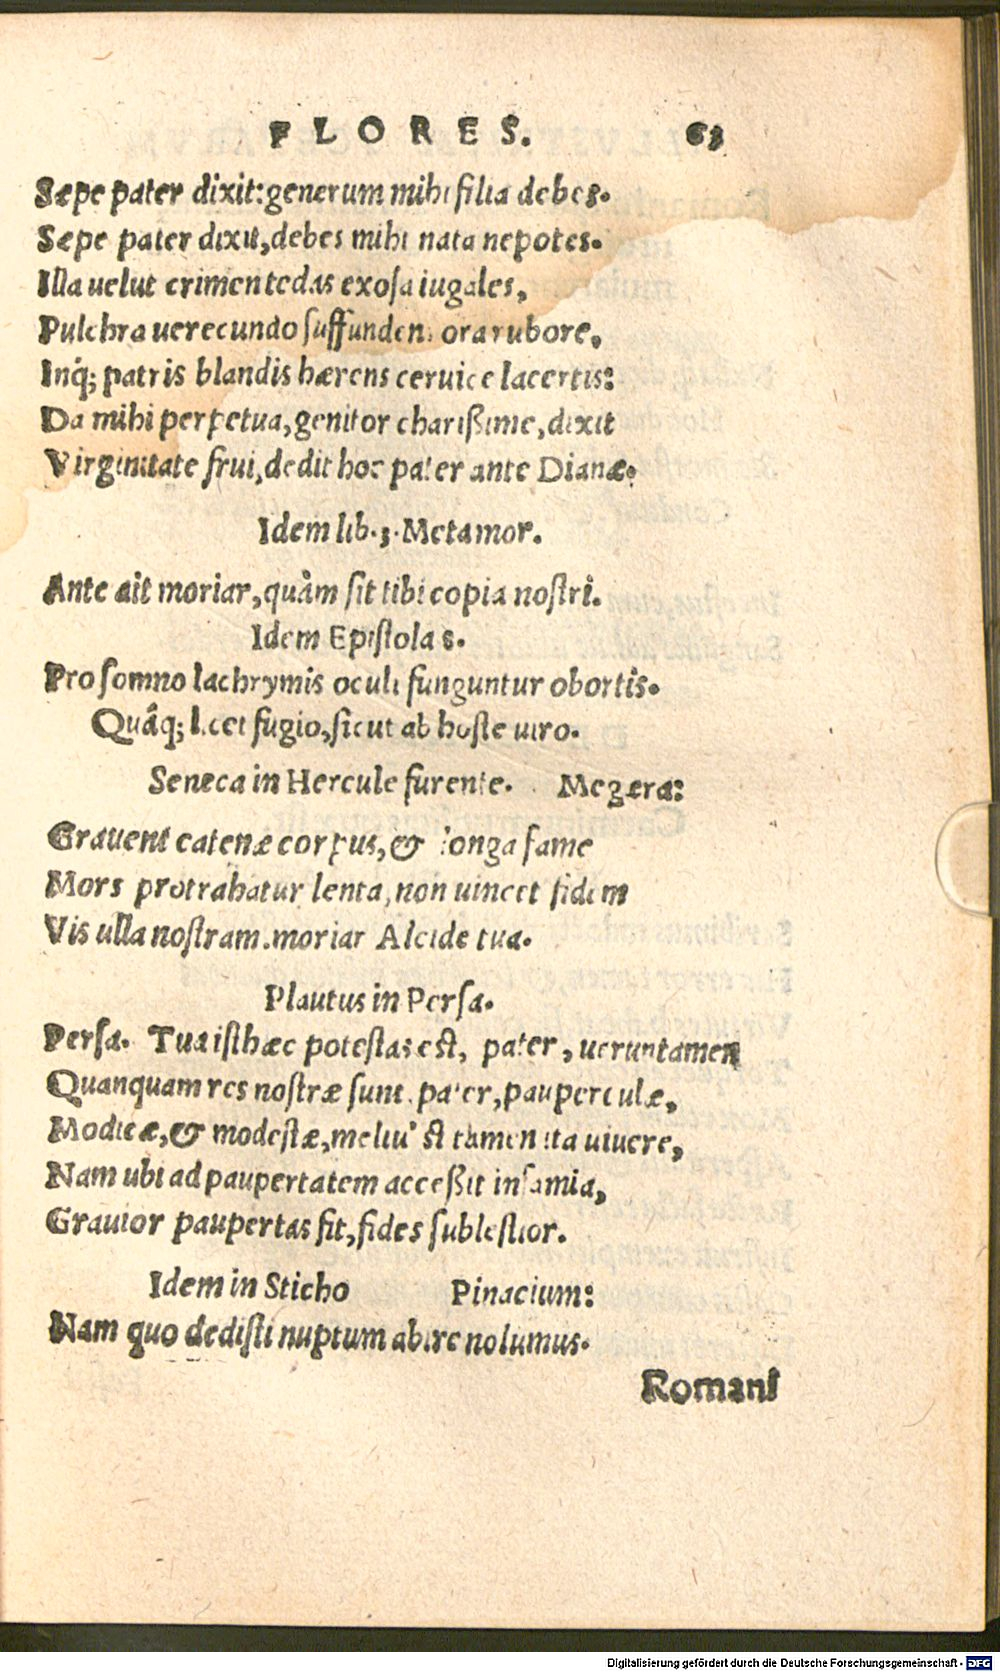 FLORES. 63
Sæpe pater dixit: generum mihi filia debes.
Sæpe pater dixit, debes mihi nata nepotes.
Illa uelut crimen tedas exosa iugales,
Pulchra uerecundo suffunden. ora rubore,
Inq́; patris blandis hærens ceruice lacertis:
Da mihi perpetua, genitor charißime, dixit
Virginitate frui, dedit hoc pater ante Dianæ.
Idem lib. 3. Metamor.
Ante ait moriar, quàm sit tibi copia nostri.
Idem Epistolas.
Pro somno lachrymis oculi funguntur obortis.
Quáq; licet fugio, sicut ab hoste uiro.
Seneca in Hercule furente. Megæra:
Grauent catenæ corpus, & longa fame
Mors protrahatur lenta, non uincet fidem
Vis ulla nostram. moriar Alcide tua.
Plautus in Persa.
Persa. Tua isthæc potestas est, pater, ueruntamen
Quanquam res nostræ sunt, pater, pauperculæ,
Modicæ, & modestæ, meliu' st tamen ita uiuere,
Nam ubi ad paupertatem acceßit infamia,
Grauior paupertas fit, fides sublestior.
Idem in Sticho Pinacium:
Nam quo dedisti nuptum abire nolumus.
Romani
Digitalisierung gefördert durch die Deutsche Forschungsgemeinschaft - DFG